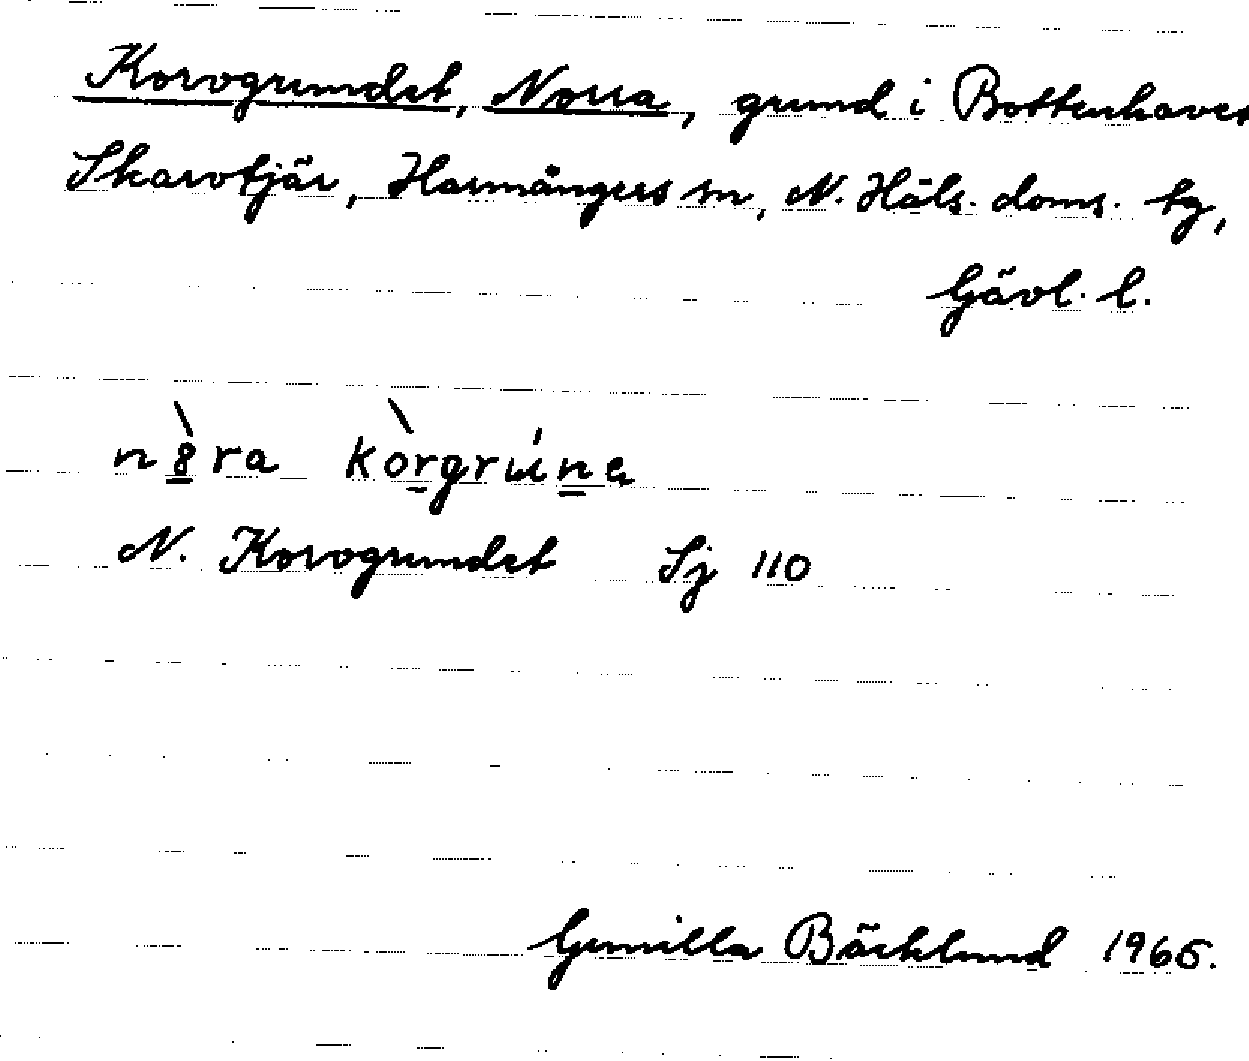 Korvgrundet, Norra, grund i Bottenhavet
Skarvtjär, Harmångers sn, N. Häls. doms. tg,
Gävl. l.
N. Korvgrundet Sj 110
Gunilla Bäcklund 1965.